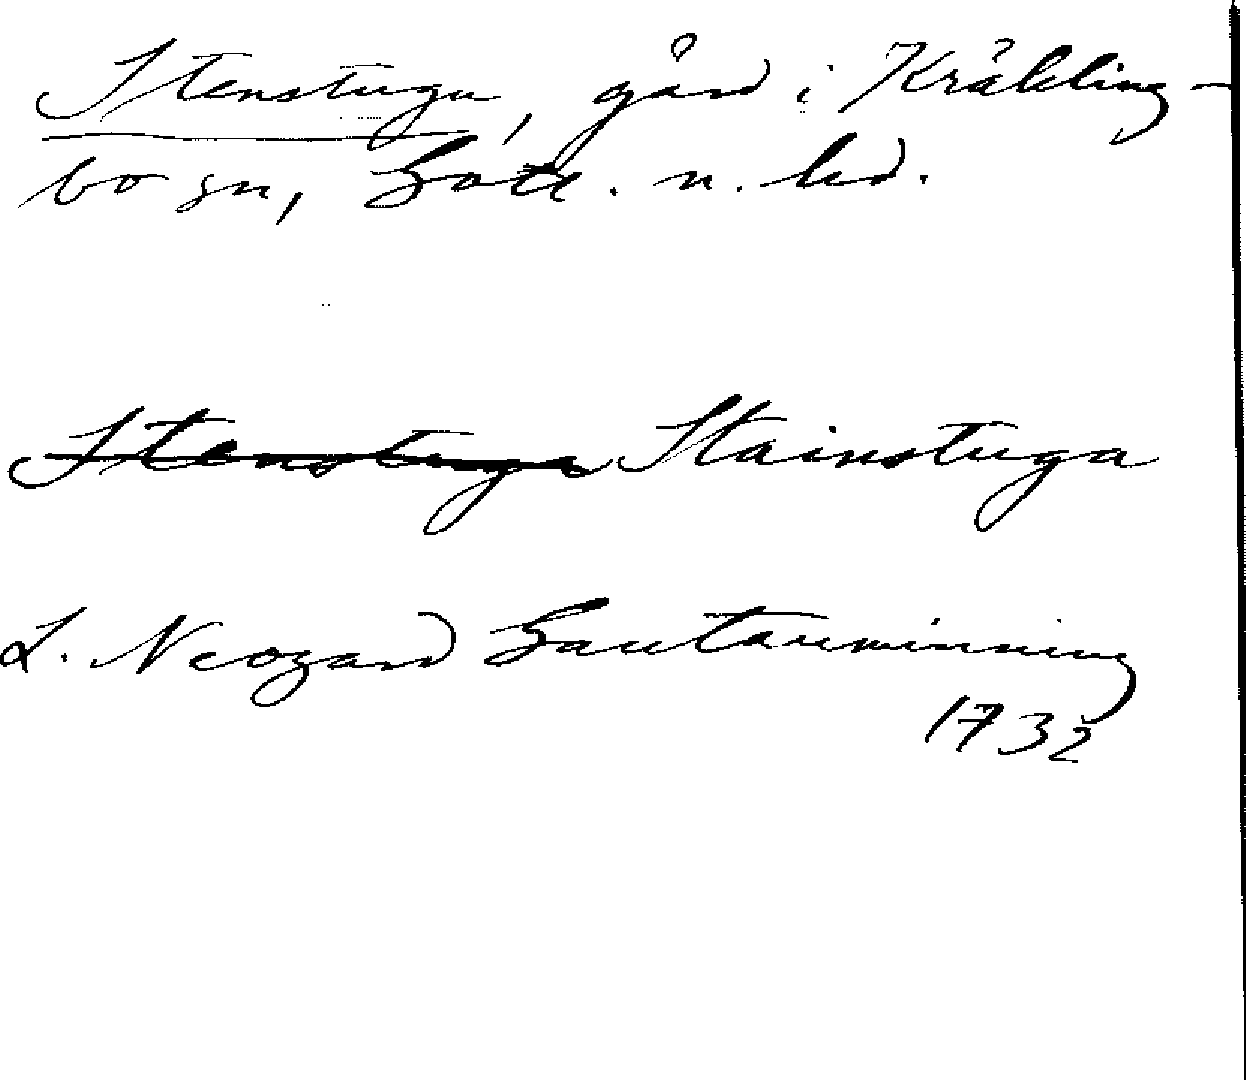 Stenstugu, gård i Kräkling-
bo sn, Gotl. n. hd.
Stenstuga Stainstuga
L. Neogard Gautaminning
1732